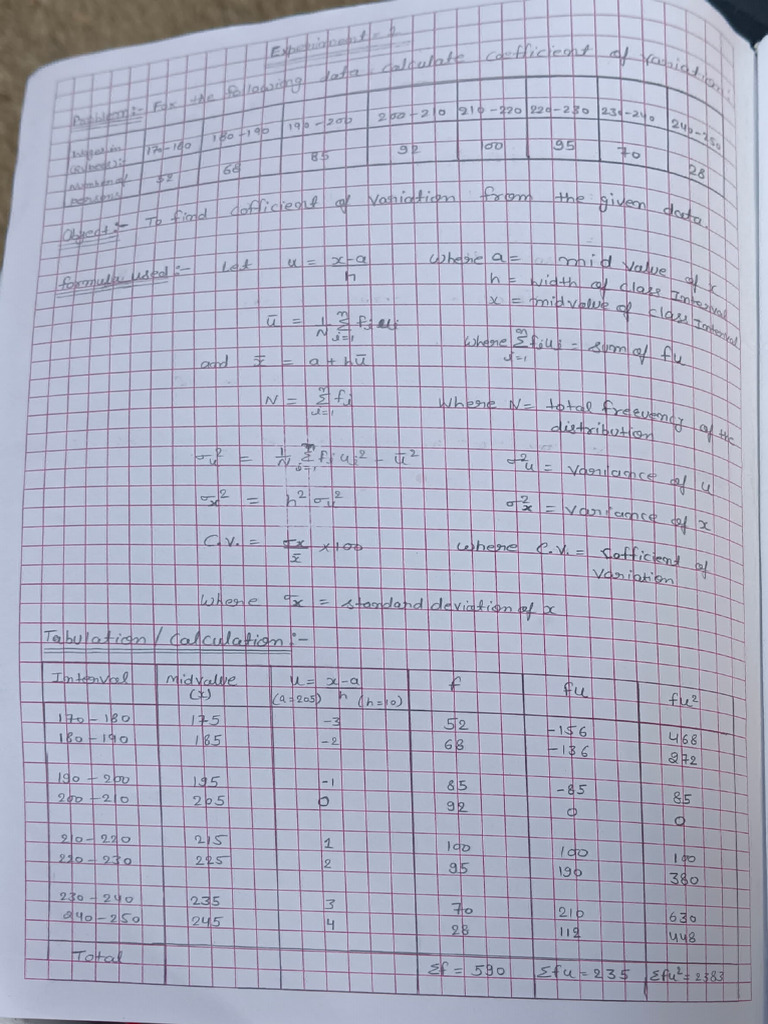 Experiment - 2
Problem:- For the following data calculate coefficient of variation:
Wages in 170-180 180-190 190-200 200-210 210-220 220-230 230-240 240-250
Number of persons 52 68 85 92 100 95 70 28
Object:- To find cofficient of variation from the given data.
Formula used:- Let u = x-a / h where a = mid value of x
h = width of class Interval
x = midvalue of class Interval
ū = 1/N Σ fi ui where Σ fiui = sum of fu
and x̄ = a + hū
N = Σ fi where N = total freevency of the distribution
σu² = 1/N Σ fi ui² - ū² σ²u = variance of u
σx² = h² σu² σ²x = variance of x
C.V. = σx / x̄ ×100 where C.V. = cofficient of variation
where σx = standard deviation of x
Tabulation / Calculation :-
Interval Midvalue (x) u = x-a / h (a=205) (h=10) f fu fu²
170-180 175 -3 52 -156 468
180-190 185 -2 68 -136 272
190-200 195 -1 85 -85 85
200-210 205 0 92 0 0
210-220 215 1 100 100 100
220-230 225 2 95 190 380
230-240 235 3 70 210 630
240-250 245 4 28 112 448
Total Σf = 590 Σfu = 235 Σfu² = 2383